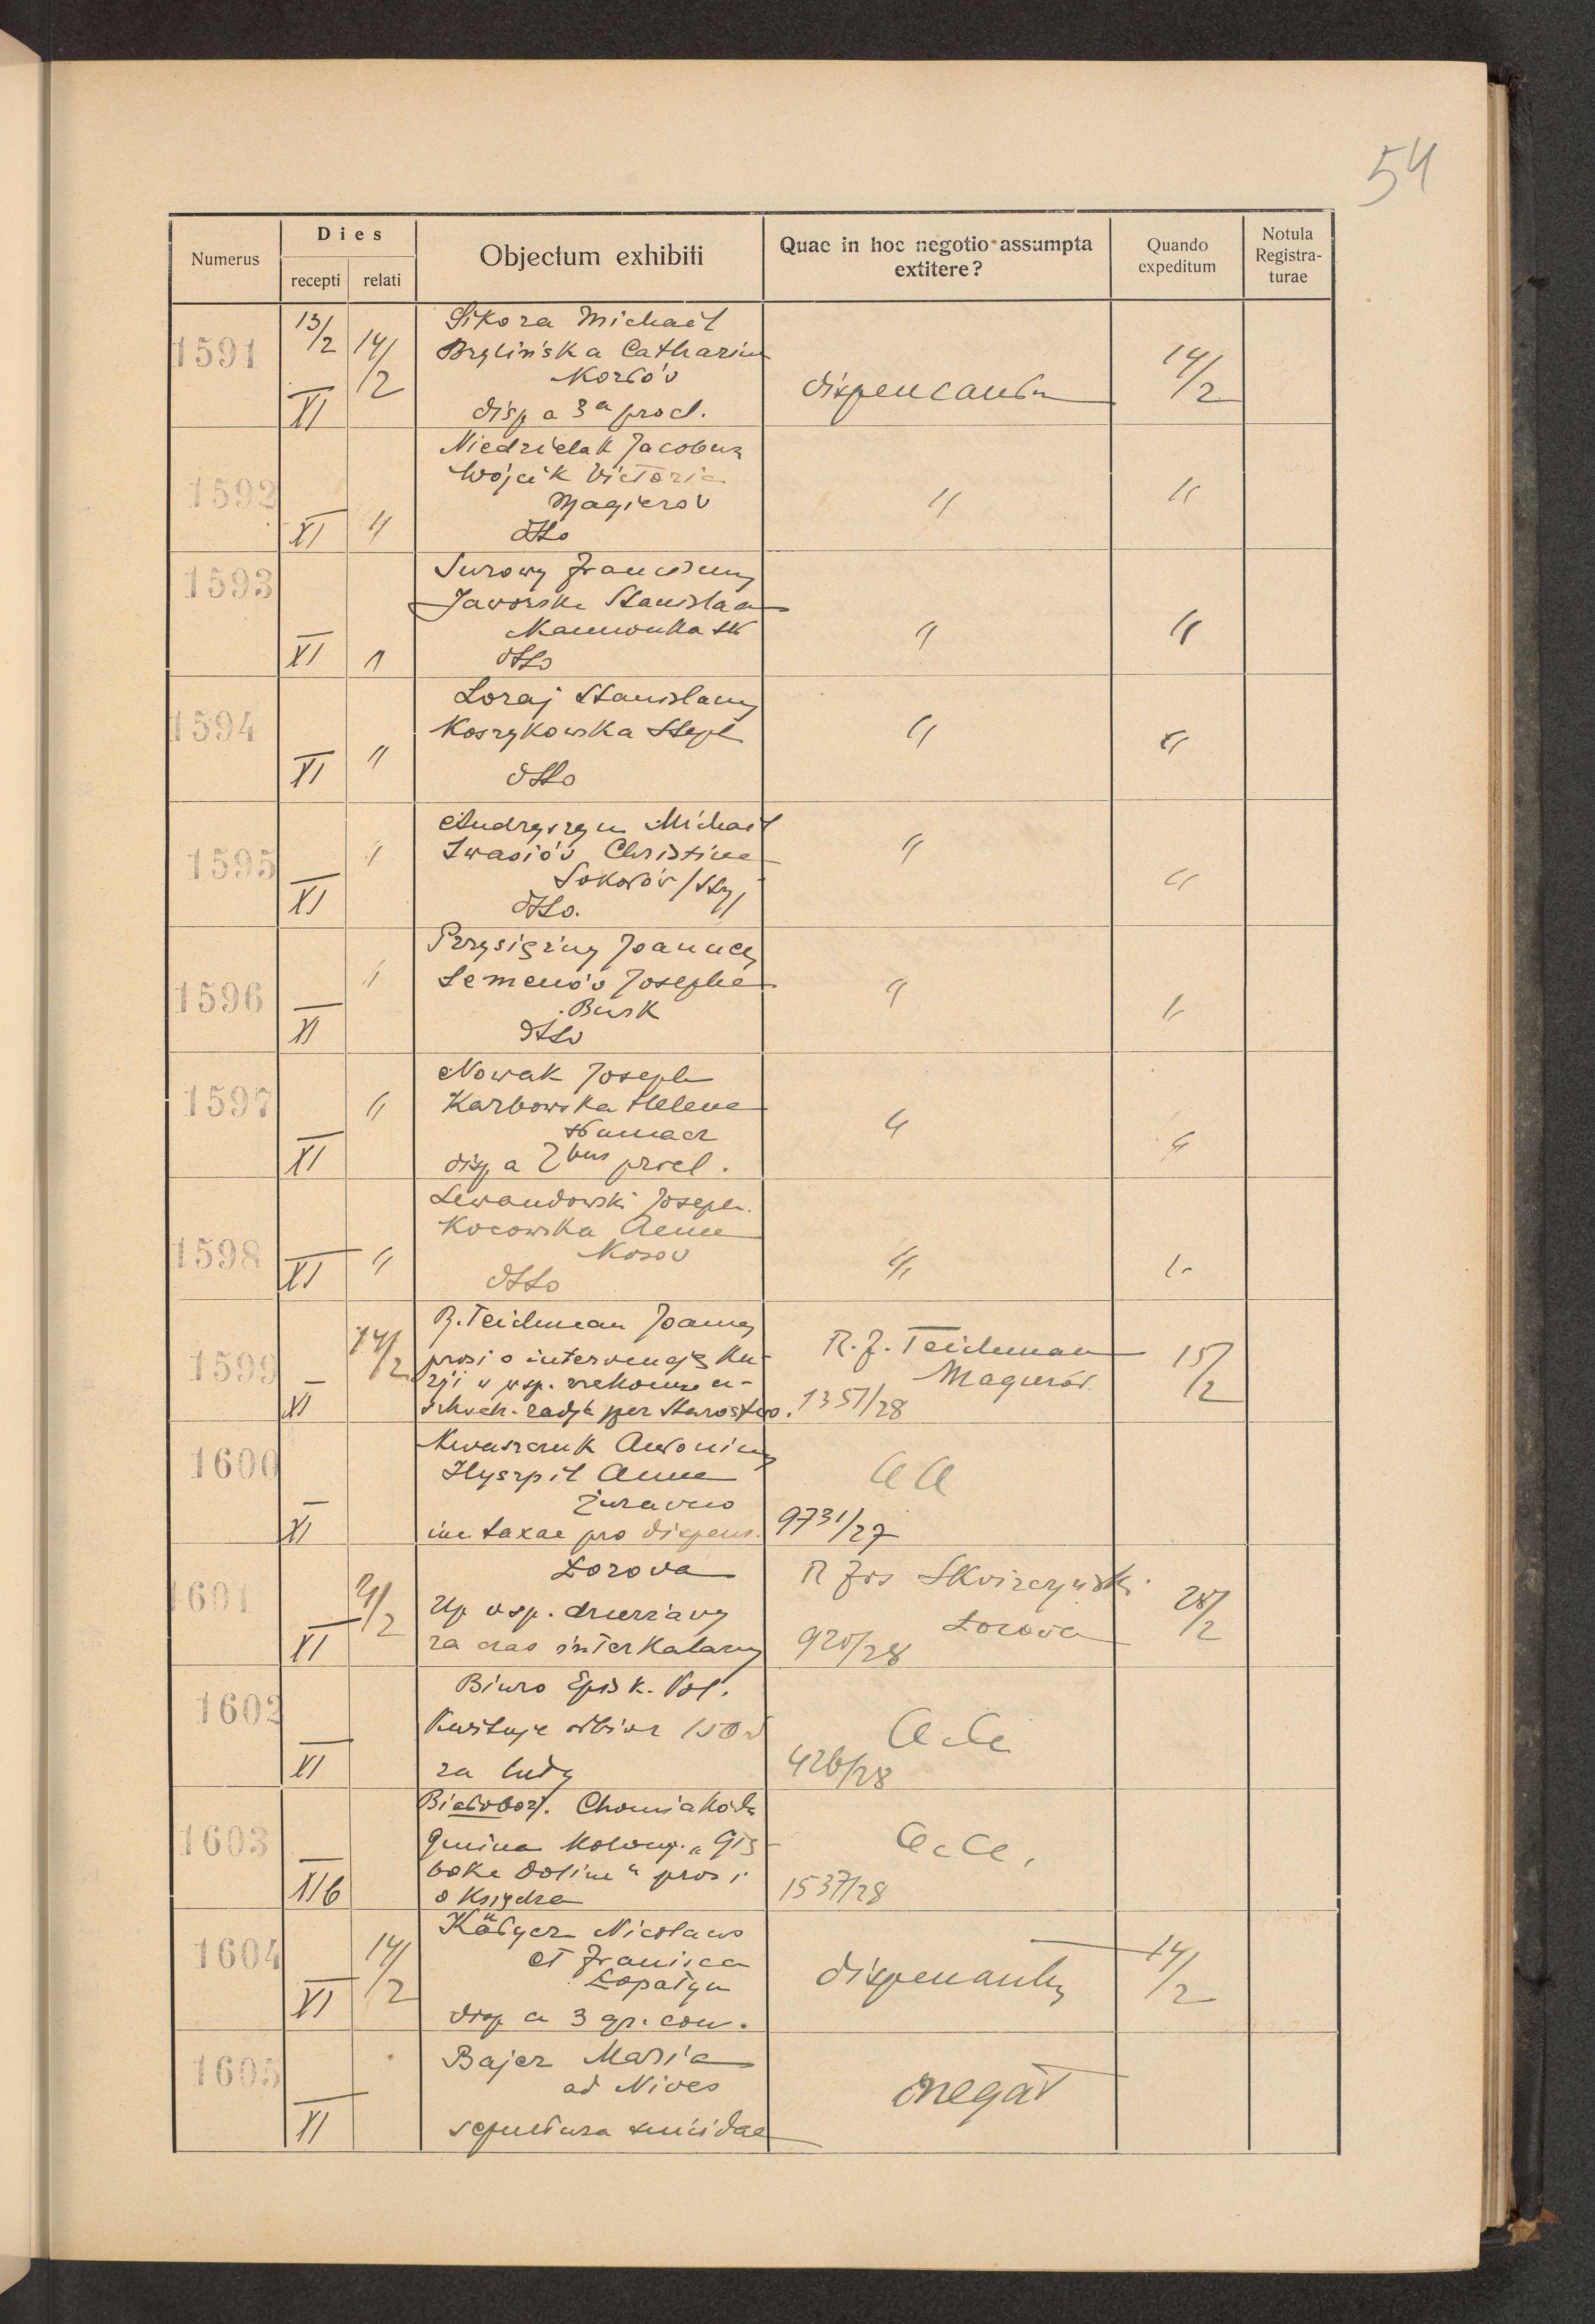 54
Numerus
Dies
recepti relati
Objectum exhibiti
Quae in hoc negotio assumpta extitere?
Quando expeditum
Notula Registra-turae
1591 13/2 XI 14/2
Sikora Michael
Brylińska Catharina
disp a 3a procl.
14/2
1592 XI "
Niedzielak Jacobus
Wójcik Victoria
Magierov
dtto
" "
1593 XI "
Surowy Franciscus
Jaworska Stanislaa
dtto
" "
1594 XI "
Loraj Stanislaus
Koszykowska Steph
dtto
" "
1595 XI "
Andryszyn Michael
Iwasióv Christina
Sokołóv /Stry/
dtto.
" "
1596 XI "
Przysiężny Joannes
Semenóv Josepha
Busk
dtto
" "
1597 XI "
Nowak Joseph
Karbowska Helena
disp a 2bus procl.
" "
1598 XI "
Lewandowski Joseph.
Kocowska Anna
Kosov
dtto
" "
1599 XI 14/2
R. Teichman Joannes
prosi o interwencję Ku-
rji v
per Starostwo.
R. J. Teichman
Magieróv
1351/28
15/2
1600 XI
Kwaszczuk Antonius
Anna
Żuravno
taxae pro dispens.
a a
9731/27
1601 XI /2
Łozova
Up vsp. dzierżavy
za czas interkalarny
R Jos Skvirczyński
Łozova
920/28
/2
1602 XI
Biuro Episk. Pol.
Kwituje odbiór 150 zł
za
a a
426/28
1603 XIb
Białoboż. Chomiakóvka
Gmina Kolony. „Głę-
boka Dolina" prosi
o Księdza
a a.
1537/28
1604 XI 14/2
Nicolaus
et Franisca
Łopatyn
disp a 3 gr. con.
dispensantur
14/2
1605 XI
Bajer Maria
ad Nives
sepultura suicidae
negat